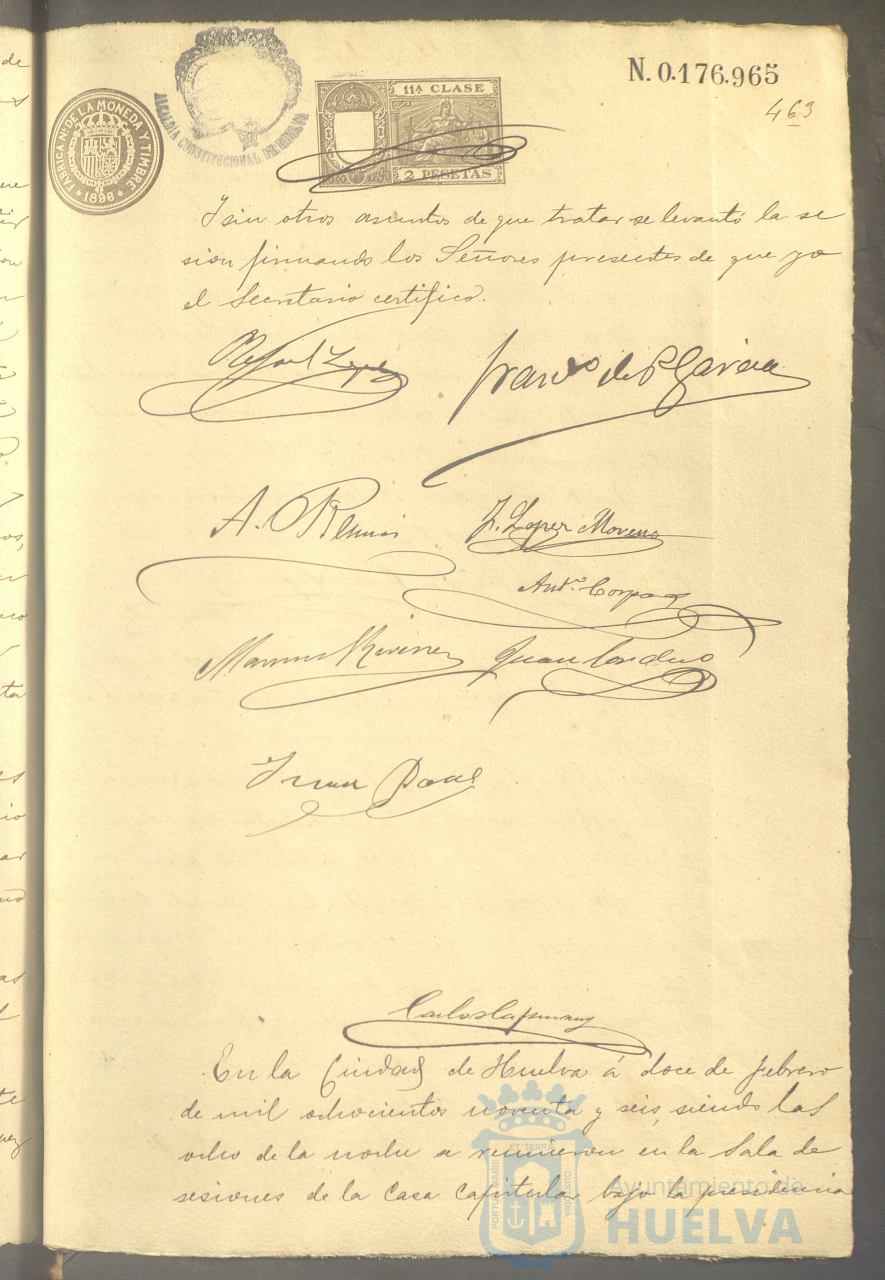 N. 0.176.965
463
FABRICA Nal. DE LA MONEDA Y TIMBRE
* 1896 *
ALCALDIA CONSTITUCIONAL DE HUELVA
11ª CLASE
2 PESETAS
Y sin otros asuntos de que tratar se levantó la se
sion firmando los Señores presentes de que yo
el Secretario certifico.
Rafael Lopez
Franco de P Garcia
A.
J. Lopez Moreno
Anto.
Juan
Juan
Carlos
En la Ciudad de Huelva á doce de febrero
de mil ochocientos noventa y seis, siendo las
ocho de la noche se reunieron en la Sala de
sesiones de la Casa Capitular bajo la presidencia
PORTUS MARIS ET TERRÆ CUSTODIA
Ayuntamiento de
HUELVA